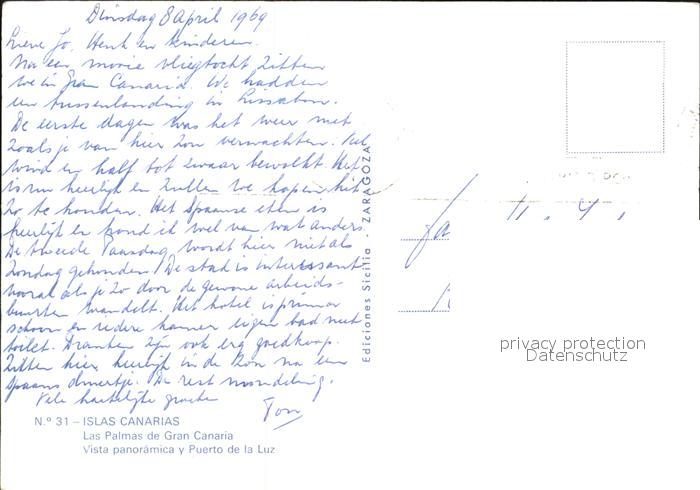 Dinsdag 8 April 1969
Lieve Jo, Henk en kinderen.
Na een mooie vliegtocht zitten
we in Gran Canaria. We hadden
een tussenlanding in Lissabon.
De eerste dagen was het weer niet
zoals je van hier zou verwachten. Veel
wind en half tot zwaar bewolkt. Het
is nu heerlijk en zullen we hopen het
zo te houden. Het Spaanse eten is
heerlijk en vond ik wel van wat anders.
De tweede Paasdag wordt hier niet als
Zondag gehouden. De stad is interessant
vooral als je zo door de gewone arbeids-
buurten wandelt. Het hotel is prima
schoon en iedere kamer eigen bad met
toilet. Dranken zijn ook erg goedkoop.
Zitten hier heerlijk in de zon na een
Spaans dinertje. De rest mondeling.
Vele hartelijke groeten
Ton
N.º 31 – ISLAS CANARIAS
Las Palmas de Gran Canaria
Vista panorámica y Puerto de la Luz
Ediciones Sicilia ZARAGOZA
Fa
privacy protection
Datenschutz